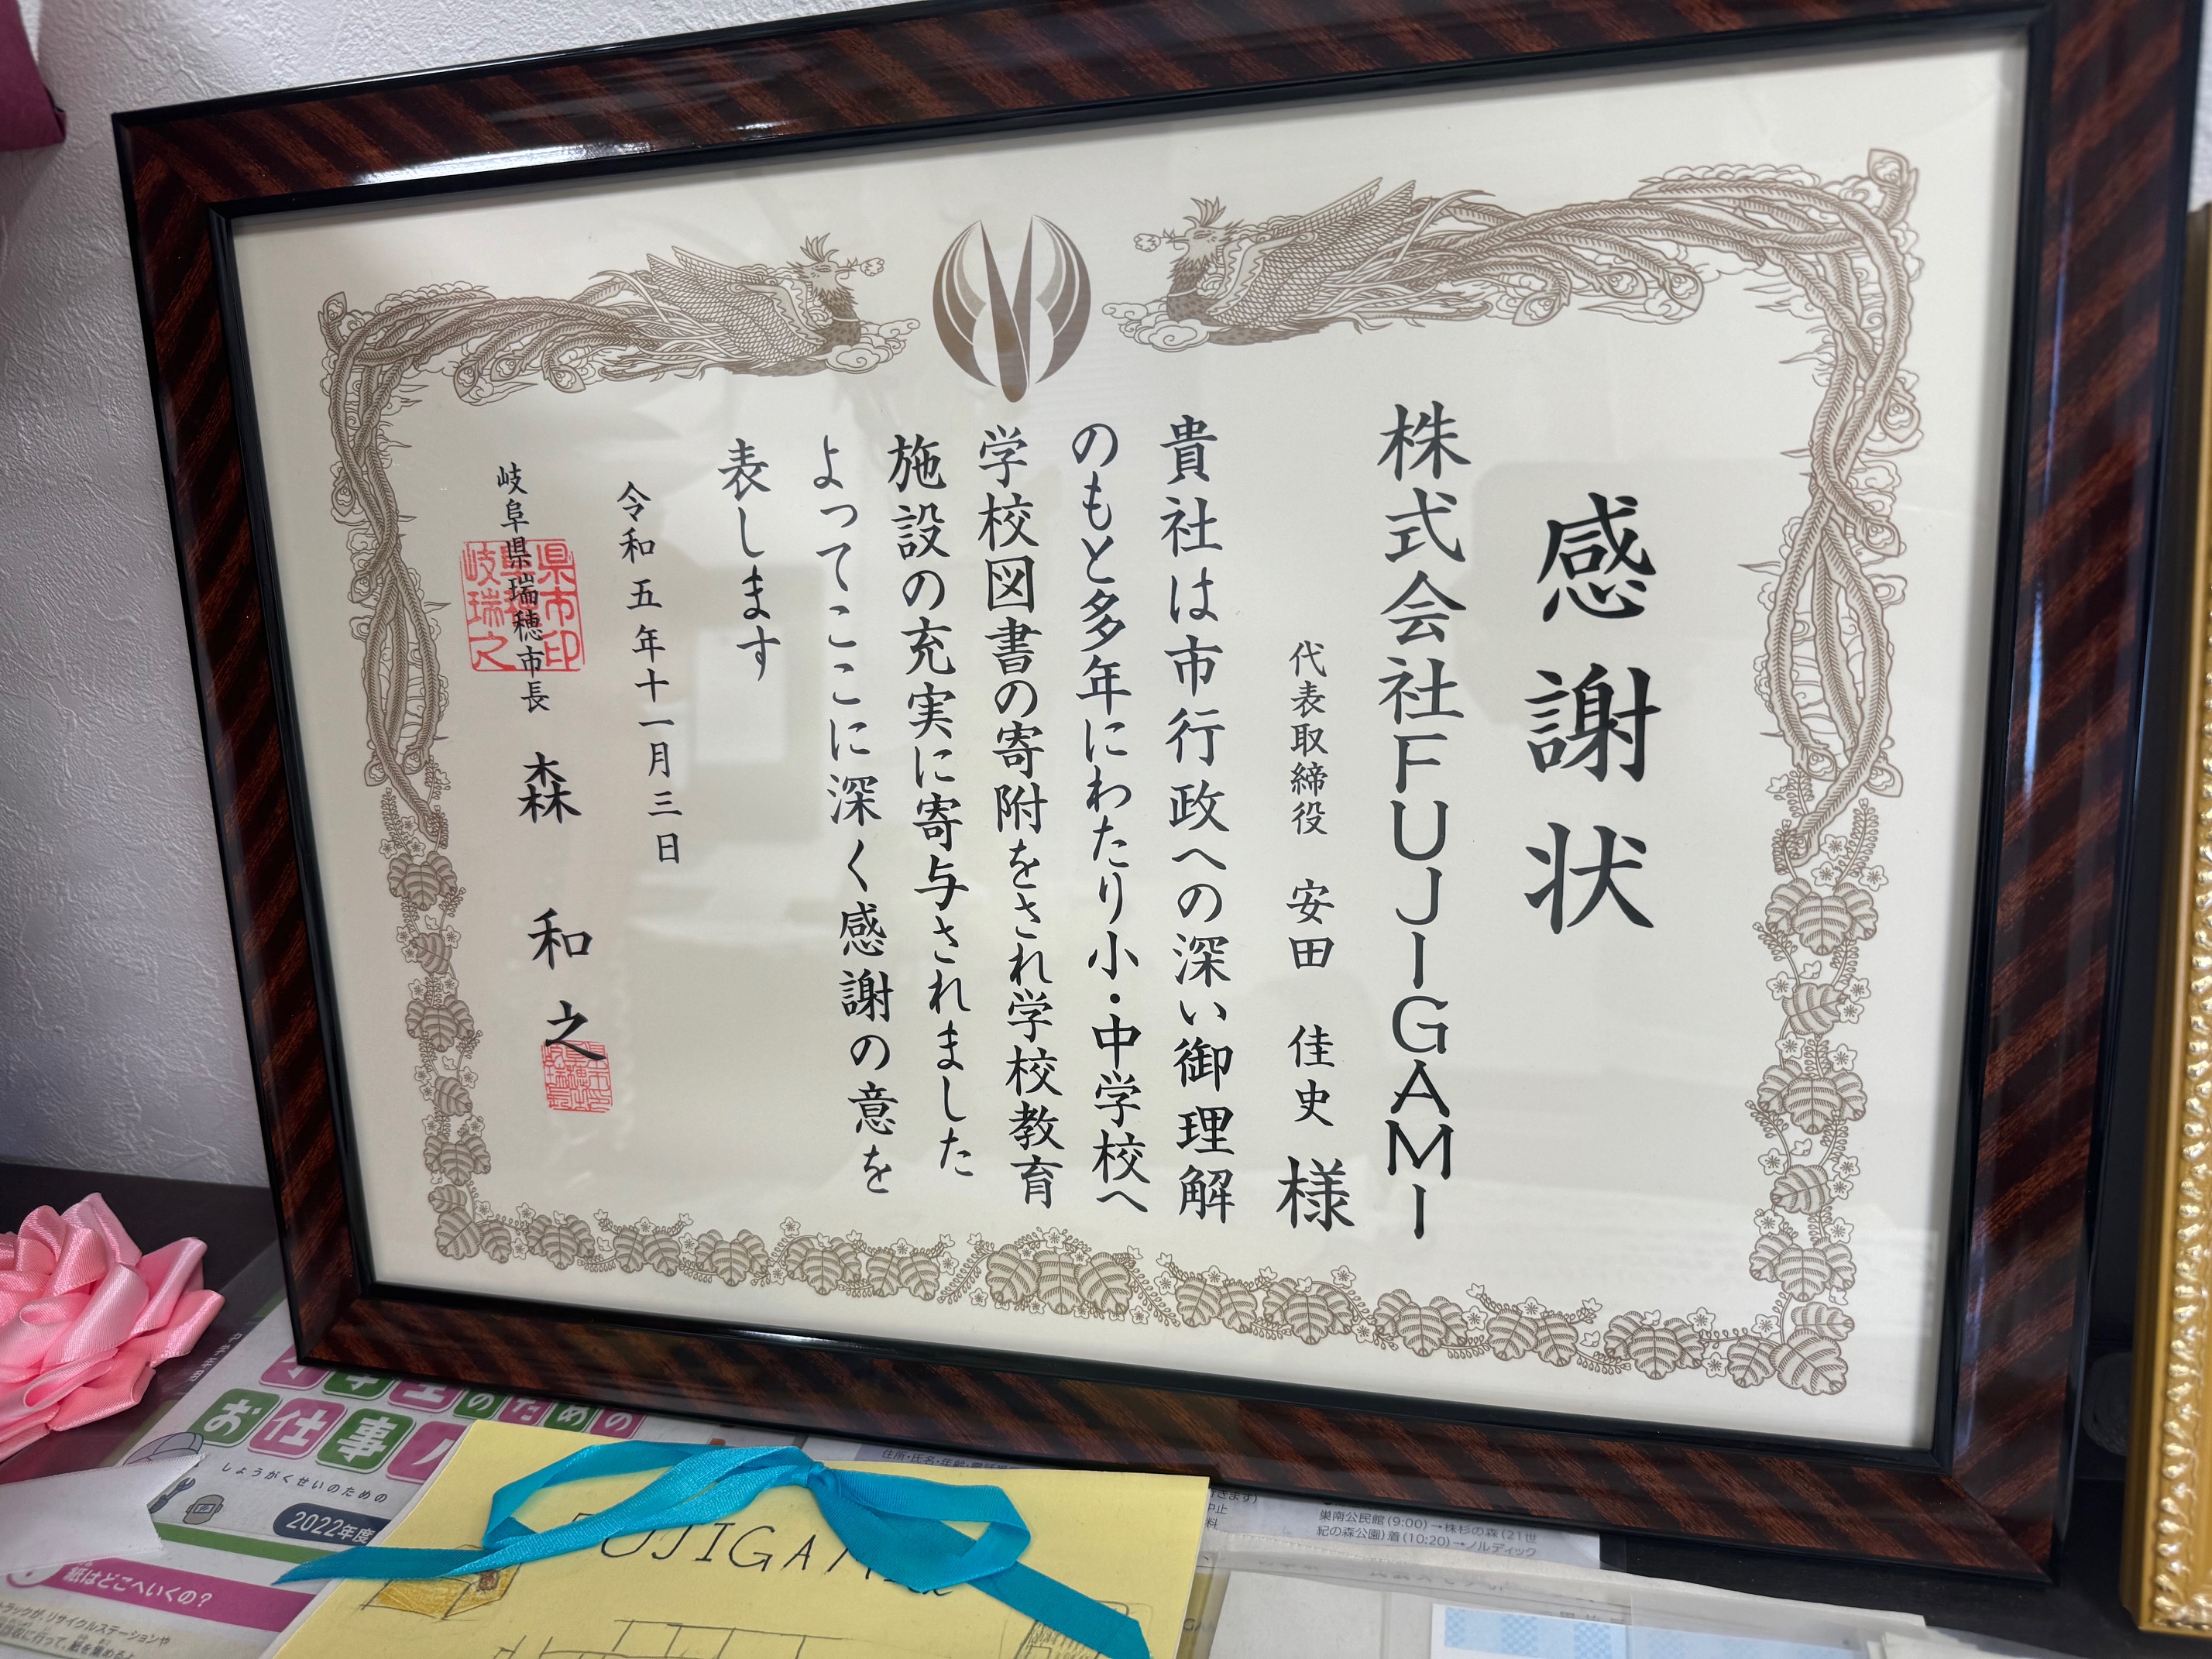 感謝状
株式会社FUJIGAMI
代表取締役 安田 佳史 様
貴社は市行政への深い御理解
のもと多年にわたり小・中学校へ
学校図書の寄附をされ学校教育
施設の充実に寄与されました
よってここに深く感謝の意を
表します
令和五年十一月三日
岐阜県瑞穂市長 森 和之
のための
お仕事
しょうがくせいのための
2022年度
紙はどこへいくの?
トラックが、リサイクルステーションや
住所・氏名・年齢・電話
巣南公民館(9:00)→株杉の森(21世
紀の森公園)着(10:20)→ノルディック